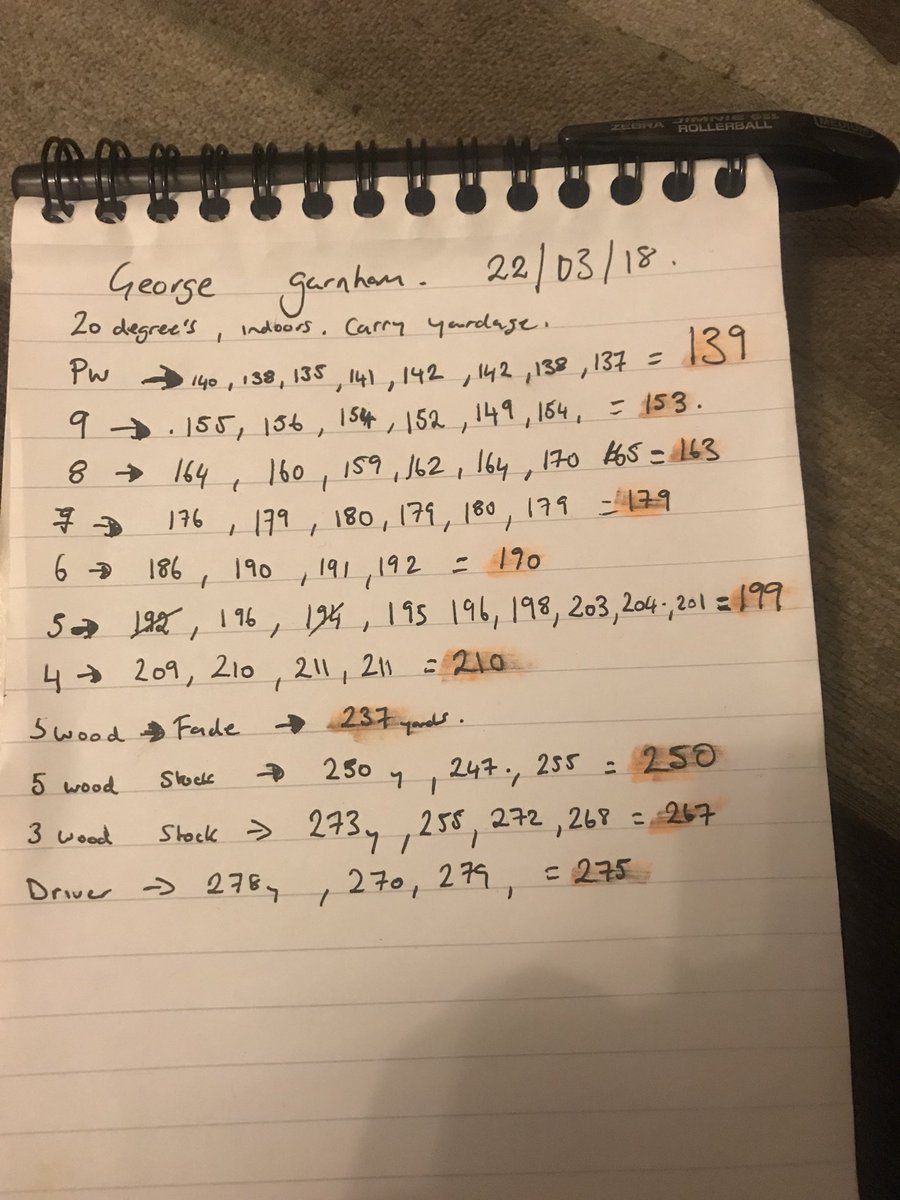 ZEBRA JIMNIE GEL
ROLLERBALL
MEDIUM
George garnham. 22/03/18.
20 degree's, indoors. Carry yardage.
PW → 140, 138, 135, 141, 142, 142, 138, 137 = 139
9 → .155, 156, 154, 152, 149, 154, = 153.
8 → 164, 160, 159, 162, 164, 170 165 = 163
7 → 176, 179, 180, 179, 180, 179 = 179
6 → 186, 190, 191, 192 = 190
5 → 192, 196, 194, 195 196, 198, 203, 204., 201 = 199
4 → 209, 210, 211, 211 = 210
5 wood → Fade → 237 yards.
5 wood Stock → 250y, 247., 255 = 250
3 wood Stock → 273y, 255, 272, 268 = 267
Driver → 278y, 270, 279, = 275